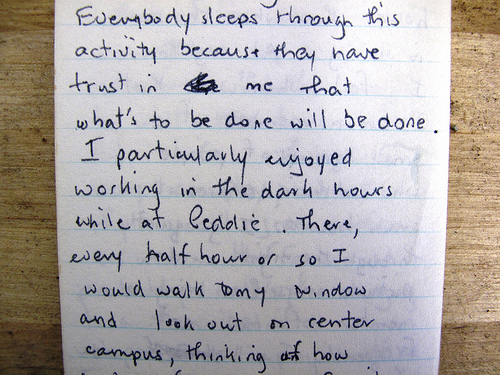 Everybody sleeps through this
activity because they have
trust in me that
what's to be done will be done.
I particularly enjoyed
working in the dark hours
while at Peddie. There,
every half hour or so I
would walk to my window
and look out on center
campus, thinking of how